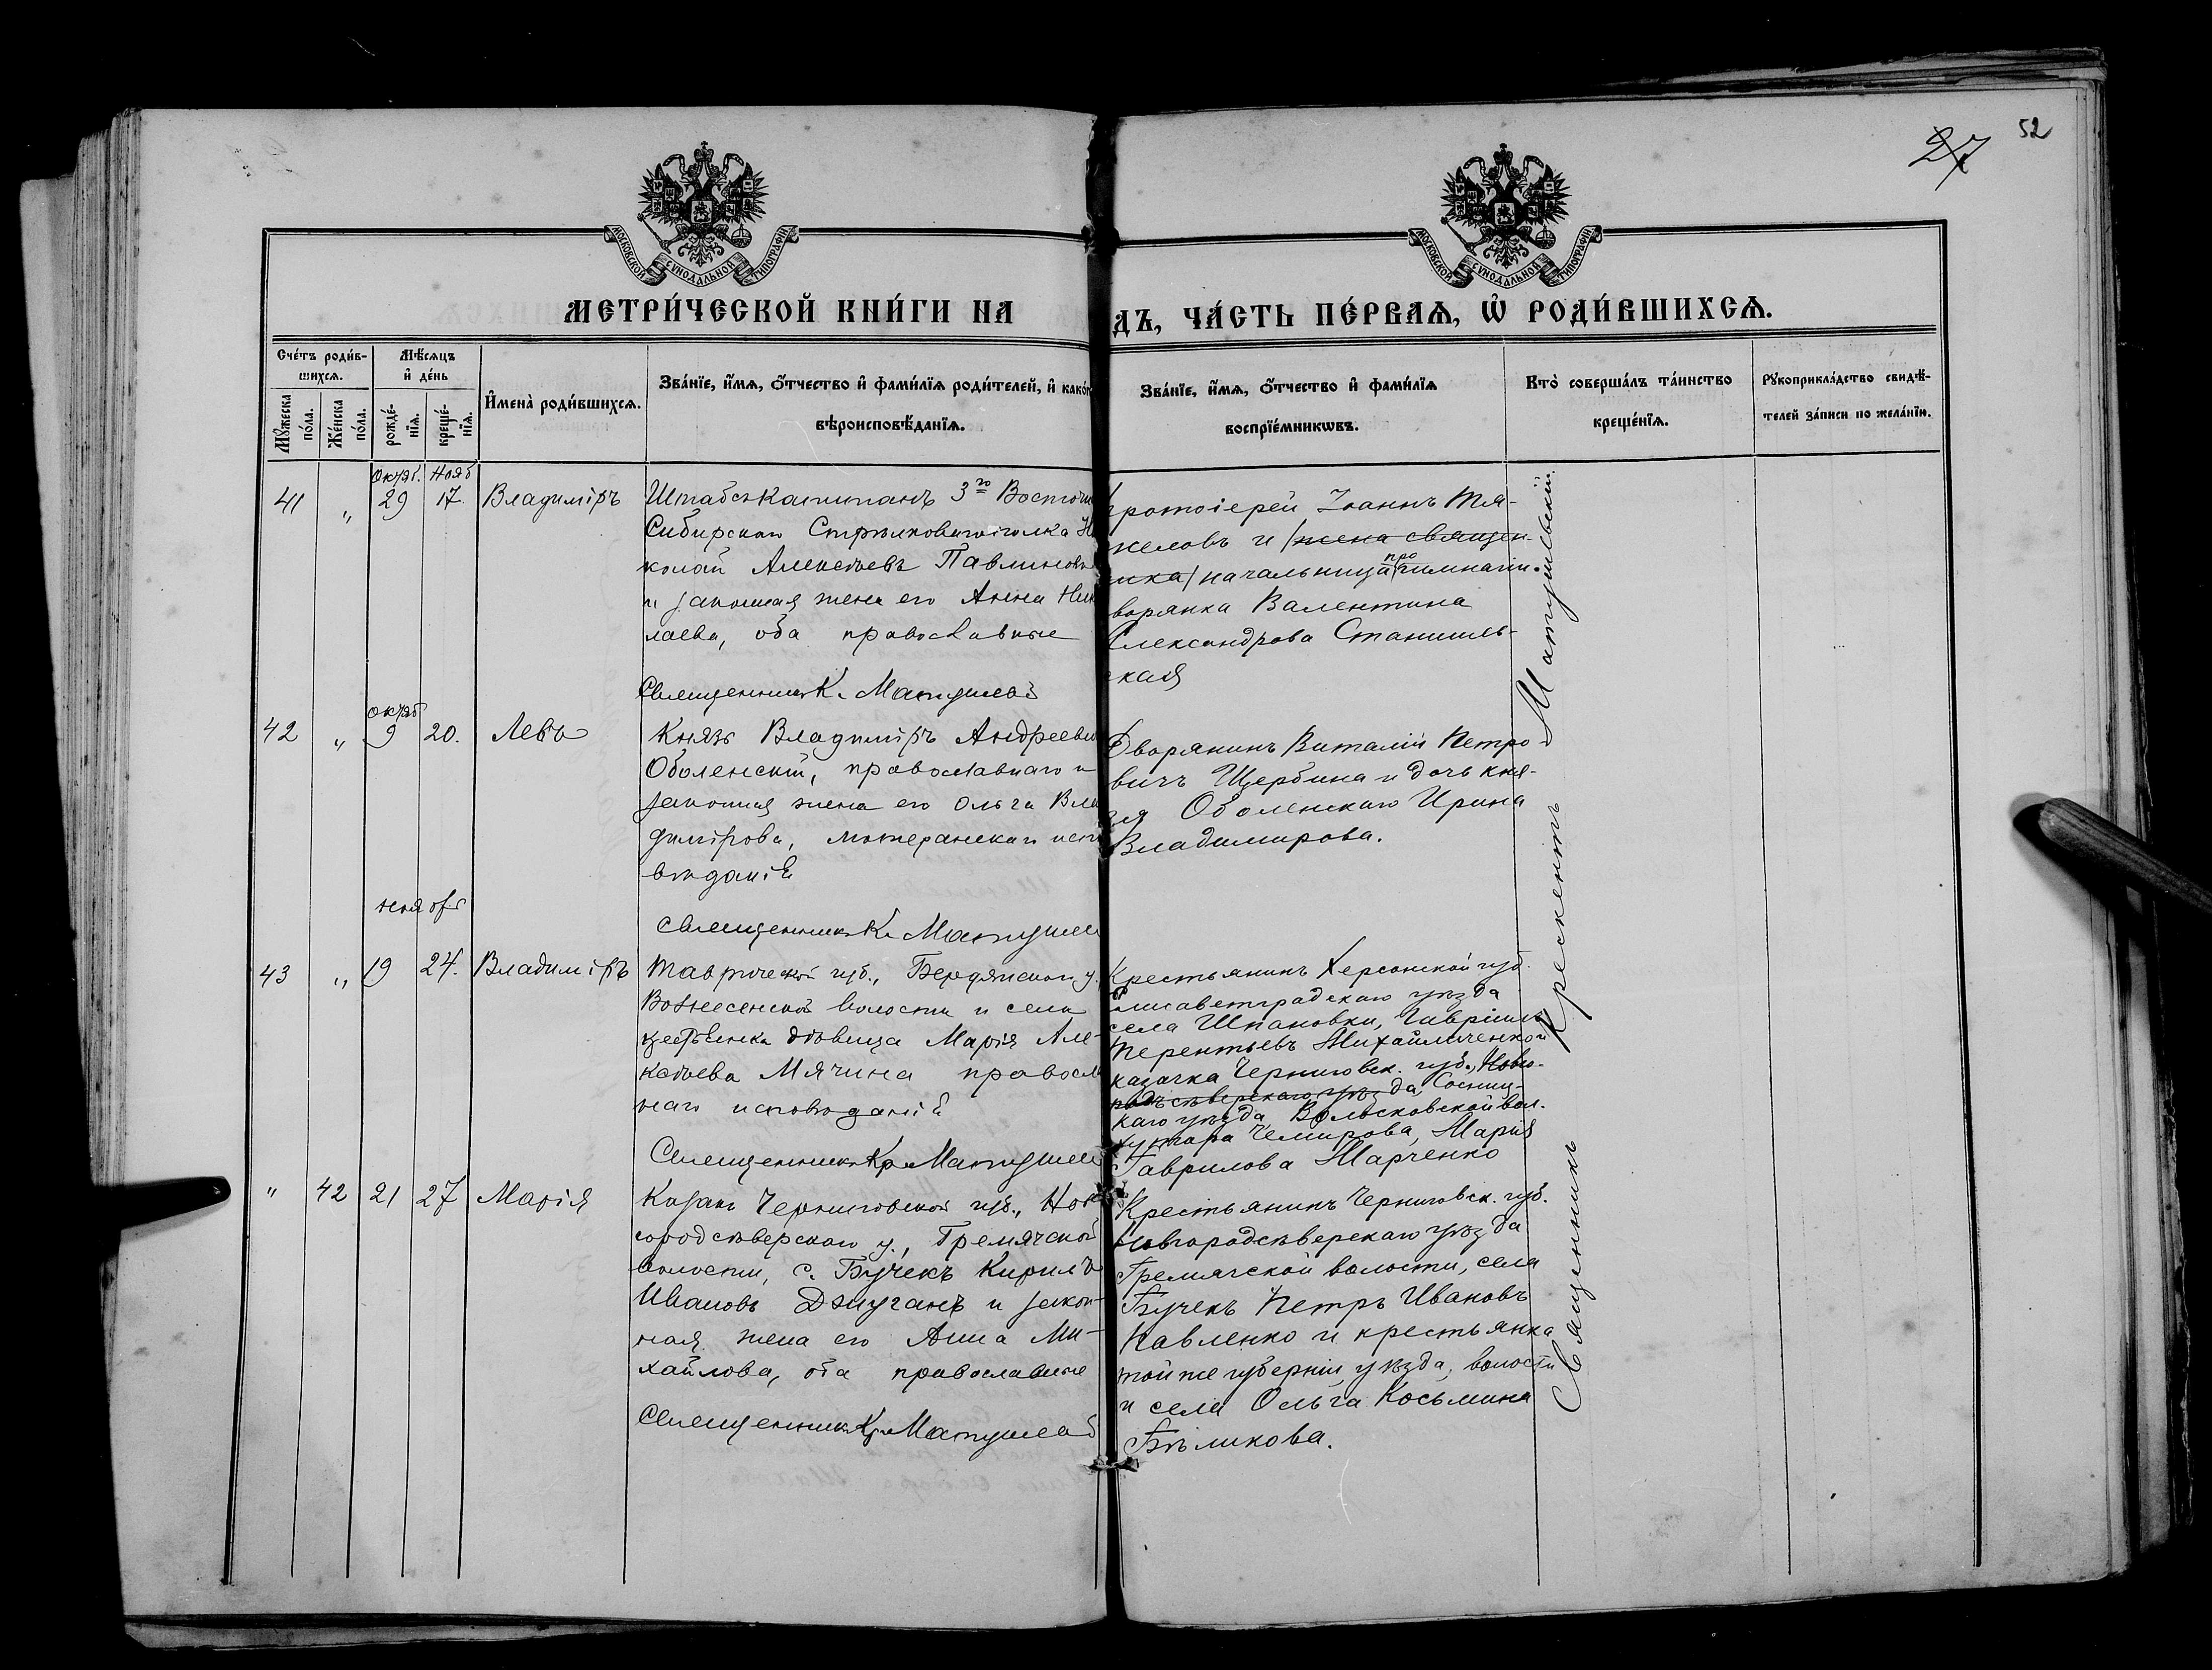 52
27
МОСКОВСКОЙ СѴНОДАЛЬНОЙ ТИПОГРАФІИ
МОСКОВСКОЙ СѴНОДАЛЬНОЙ ТИПОГРАФІИ
МЕТРИ́ЧЕСКОЙ КНИ́ГИ НА
ДЪ, ЧА́СТЬ ПЕ́РВАѦ, Ѡ҆ РОДИ́ВШИХСѦ.
Сче́тъ роди́в-
шихсѧ.
Мѣ́сѧцъ
и҆ де́нь
Мꙋ́жеска по́ла.
Же́нска по́ла.
рожде́-
нїѧ.
креще́-
нїѧ.
И҆мена̀ роди́вшихсѧ.
Зва́нїе, и҆́мѧ, ѻ҆́тчество и҆ фами́лїѧ роди́телей, и҆ како́г
вѣроисповѣ́данїѧ.
Зва́нїе, и҆́мѧ, ѻ҆́тчество и҆ фами́лїѧ
воспрїе́мникѡвъ.
Кто̀ соверша́лъ та́инство
креще́нїѧ.
Рꙋкоприкла́дство свидѣ́-
телей за́писи по жела́нїю.
Октяб. Нояб
41 " 29 17. Владиміръ
Штабсъ Капитанъ 3го Восточн
Сибирскаго Стрѣлковаго полка Ни
колай Алексѣевъ Павлиновъ
и законная жена его Анна Ник
лаева, оба православные
Священникъ К. Матушев
ротоіерей Іоаннъ Тя-
желовъ и /жена священ-
ника/ начальница про гимназіи.
ворянка Валентина
Александрова Станишев-
ская
октяб
42 " 9 20. Левъ
Князь Владиміръ Андреевичъ
Оболенскій, православнаго и
законная жена его Ольга Вла
димірова, лютеранскаго испо
вѣданія
Священникъ К. Матушев
Дворянинъ Виталій Петро-
вичъ Щербина и дочь кня-
зя Оболенскаго Ирина
Владимирова.
ноября
43 " 19 24. Владиміръ
Таврической губ., Бердянскаго у.
Вознесенской волости и села
крестьянка дѣвица Марія Але-
ксѣева Мячина правосл
наго исповѣданія
Священникъ Кр. Матушев
Крестьянинъ Херсонской губ.
Елисаветградскаго уѣзда
села Шпановки, Гавріилъ
Терентьевъ Михайличенко и
казачка Черниговск. губ., Новго-
родъсѣверскаго уѣзда Сосниц-
каго уѣзда Волосковской вол.
хутора Чемирова, Марія
Гаврилова Марченко
" 42 21 27 Марія
Казакъ Черниговской губ., Нов
городсѣверскаго у., Гремячской
волости, с. Бучекъ Кирилъ
Ивановъ Джуганъ и закон-
ная жена его Анна Ми-
хайлова, оба православные
Священникъ Кр. Матушев
Крестьянинъ Черниговск. губ.
Новгородсѣверскаго уѣзда
Гремячской волости, села
Бучекъ Петръ Ивановъ
Павленко и крестьянка
той же губерніи, уѣзда, волости
и села Ольга Косьмина
Бѣликова.
Священникъ Крескентъ Матушевскій.